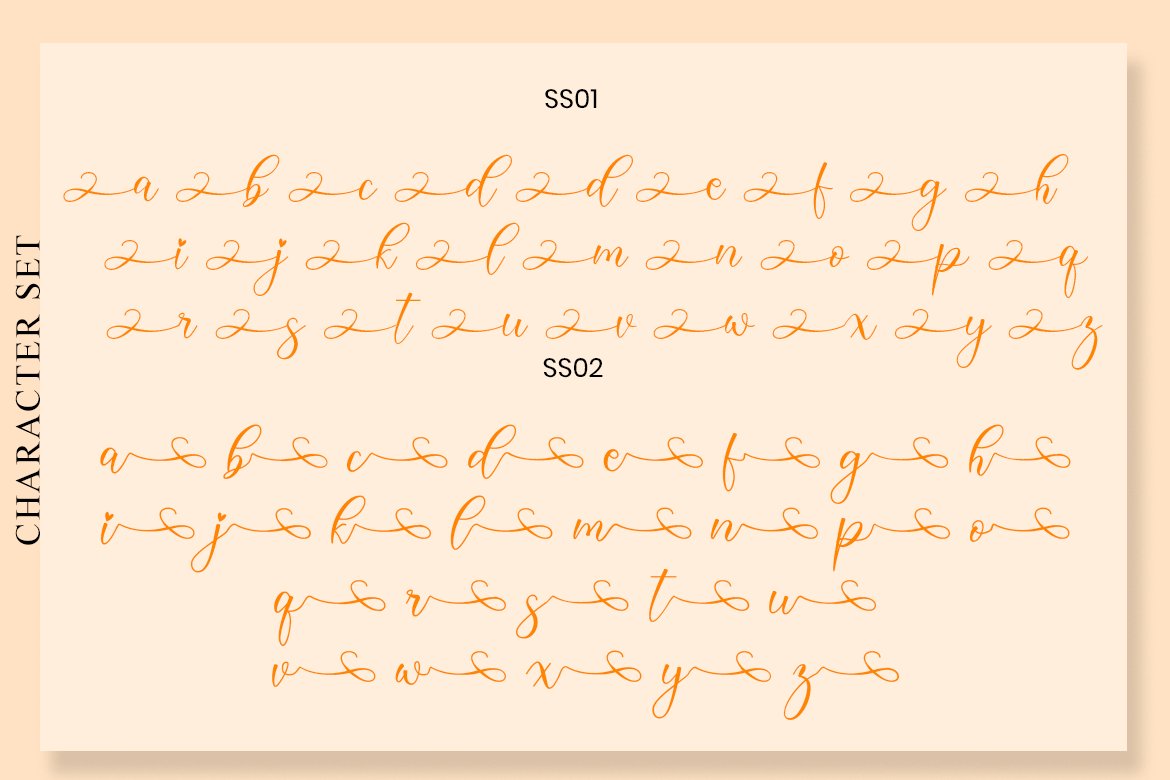 CHARACTER SET
SS01
a b c d d e f g h
i j k l m n o p q
r s t u v w x y z
SS02
a b c d e f g h
i j k l m n p o
q r s t u
v w x y z